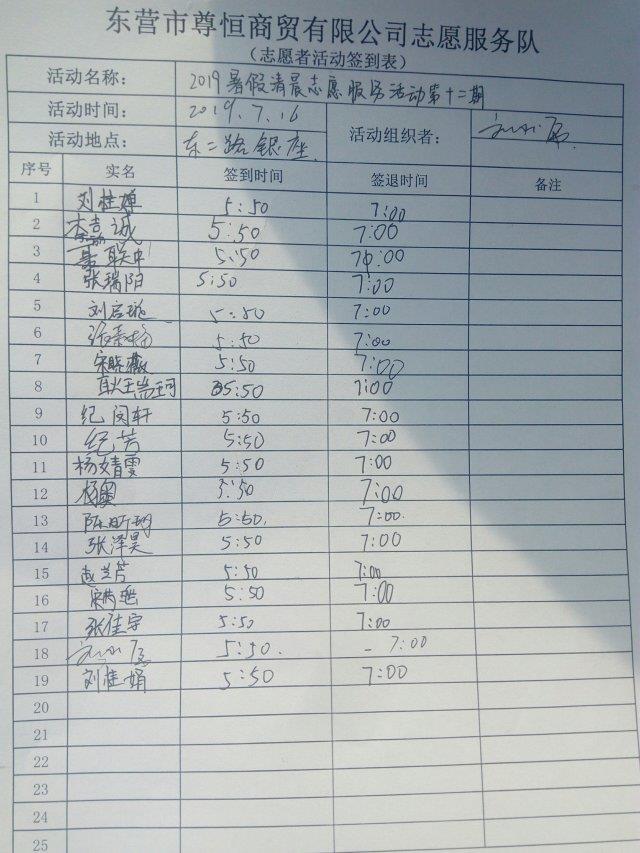 东营市尊恒商贸有限公司志愿服务队
(志愿者活动签到表)
活动名称: 2019暑假清晨志愿服务活动第十二期
活动时间: 2019.7.16
活动地点: 东二路银座. 活动组织者:
序号 实名 签到时间 签退时间 备注
1 刘桂婵 5:50 7:00
2 李嘉诚 5:50 7:00
3 联中 5:50 7:00
4 张瑞阳 5:50 7:00
5 刘启璇 5:50 7:00
6 5:50 7:00
7 宋晓薇 5:50 7:00
8 耿瑞珂 5:50 7:00
9 纪闵轩 5:50 7:00
10 纪芳 5:50 7:00
11 杨婧雯 5:50 7:00
12 杨奥 5:50 7:00
13 陈昕玥 5:50. 7:00.
14 张泽昊 5:50 7:00
15 赵兰芳 5:50 7:00
16 5:50 7:00
17 张佳宇 5:50 7:00
18 5:50. - 7:00
19 刘桂娟 5:50 7:00
20
21
22
23
24
25